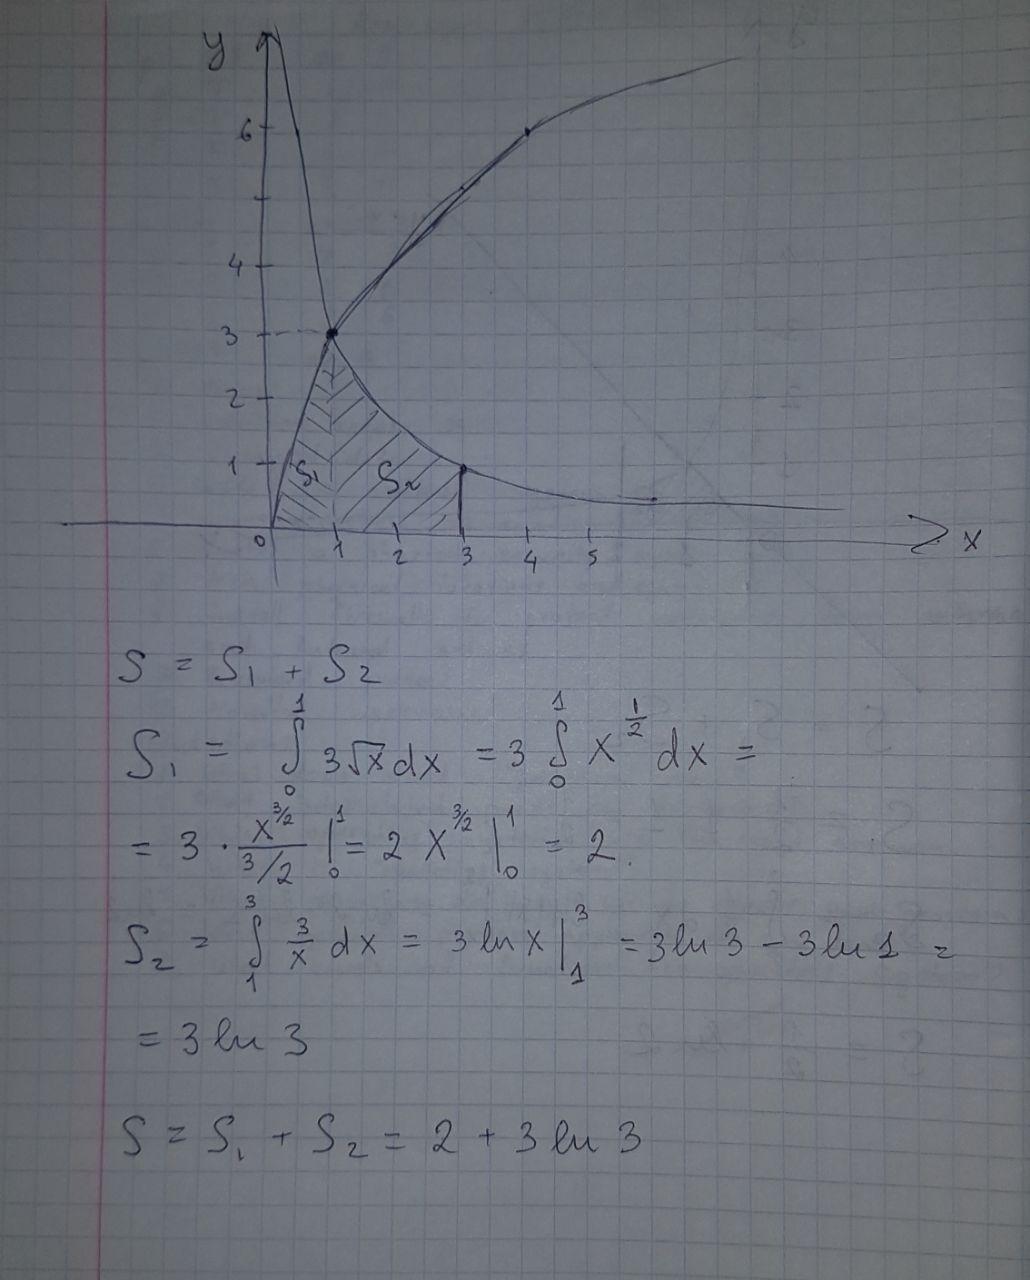 y
6
4
3
2
1
S₁ S₂
0 1 2 3 4 5 x
S = S₁ + S₂
S₁ = ∫₀¹ 3√x dx = 3 ∫₀¹ x^{1/2} dx =
= 3 · x^{3/2}/(3/2) |₀¹ = 2 x^{3/2} |₀¹ = 2.
S₂ = ∫₁³ 3/x dx = 3 ln x |₁³ = 3 ln 3 − 3 ln 1 =
= 3 ln 3
S = S₁ + S₂ = 2 + 3 ln 3